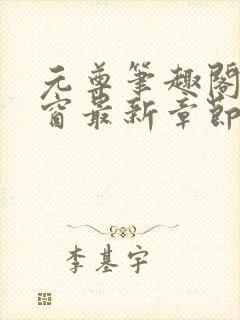 元尊笔趣阁
窗最新章节
李基宇